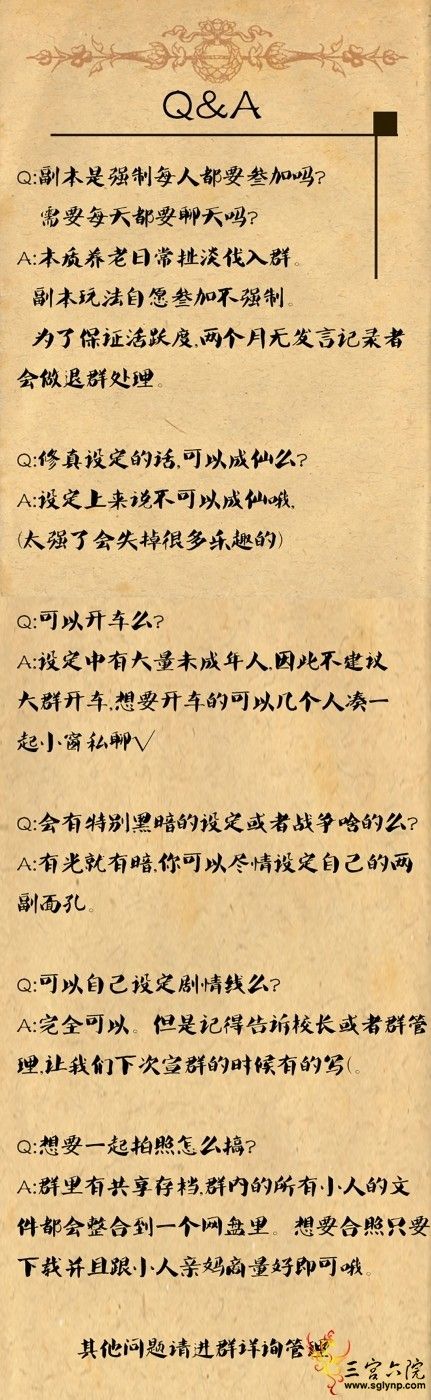 Q&A
Q:副本是强制每人都要参加吗?
需要每天都要聊天吗?
A:本质养老日常扯淡伐入群。
副本玩法自愿参加不强制。
为了保证活跃度,两个月无发言记录者
会做退群处理。
Q:修真设定的话,可以成仙么?
A:设定上来说不可以成仙哦,
(太强了会失掉很多乐趣的)
Q:可以开车么?
A:设定中有大量未成年人,因此不建议
大群开车,想要开车的可以几个人凑一
起小窗私聊√
Q:会有特别黑暗的设定或者战争啥的么?
A:有光就有暗,你可以尽情设定自己的两
副面孔。
Q:可以自己设定剧情线么?
A:完全可以。但是记得告诉校长或者群管
理,让我们下次宣群的时候有的写(。
Q:想要一起拍照怎么搞?
A:群里有共享存档,群内的所有小人的文
件都会整合到一个网盘里。想要合照只要
下载并且跟小人亲妈商量好即可哦。
其他问题请进群详询管理
三宫六院
www.sglynp.com